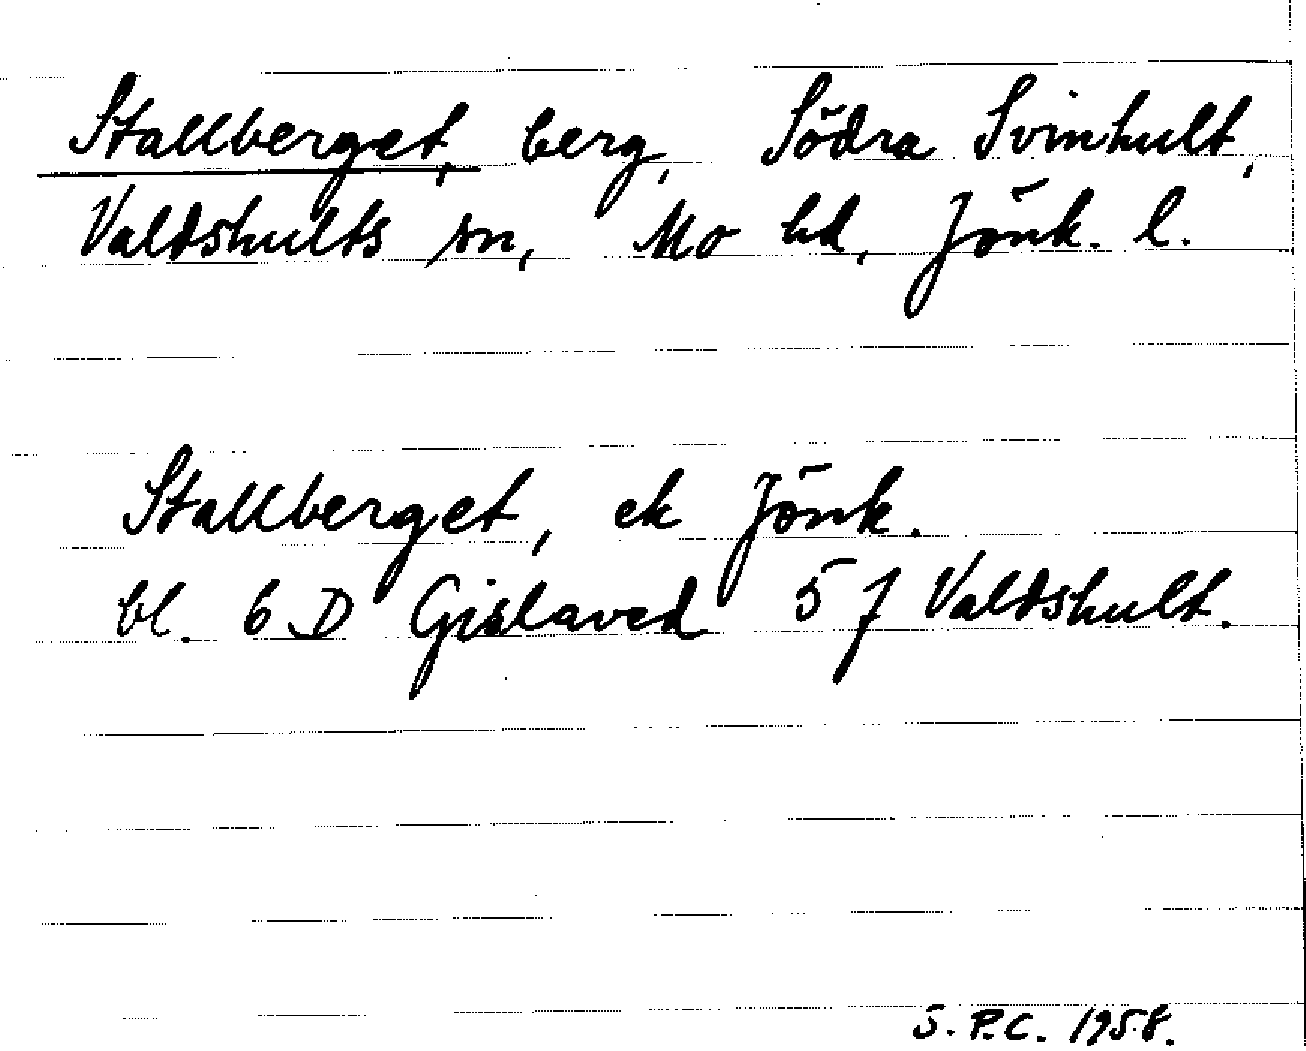 Stallberget, berg, Södra Svinhult,
Valdshults sn, Mo hd, Jönk. l.
Stallberget, ek Jönk.
bl. 6 D Gislaved 5 f Valdshult.
S.P.C. 1958.